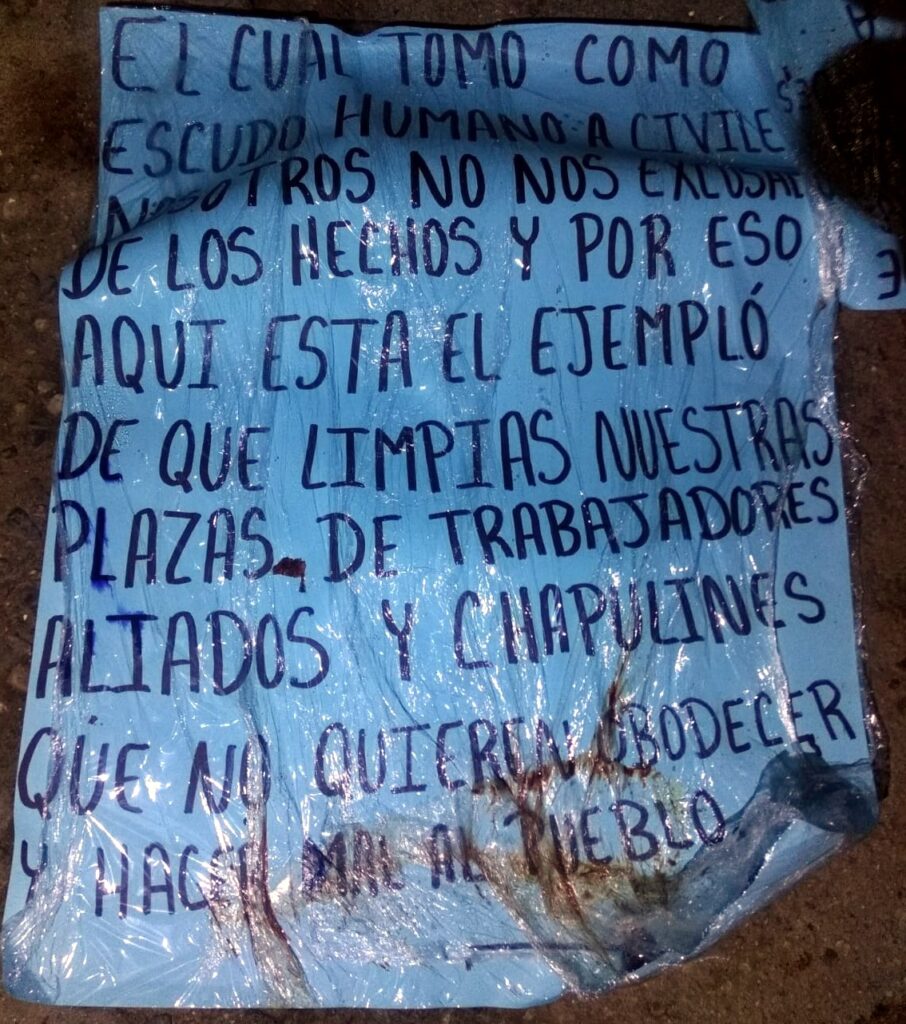 EL CUAL TOMO COMO
ESCUDO HUMANO A CIVILES
NOSOTROS NO NOS EXCUSAMOS
DE LOS HECHOS Y POR ESO
AQUI ESTA EL EJEMPLÓ
DE QUE LIMPIAS NUESTRAS
PLAZAS DE TRABAJADORES
ALIADOS Y CHAPULINES
QUE NO QUIEREN OBODECER
Y HACER MAL AL PUEBLO